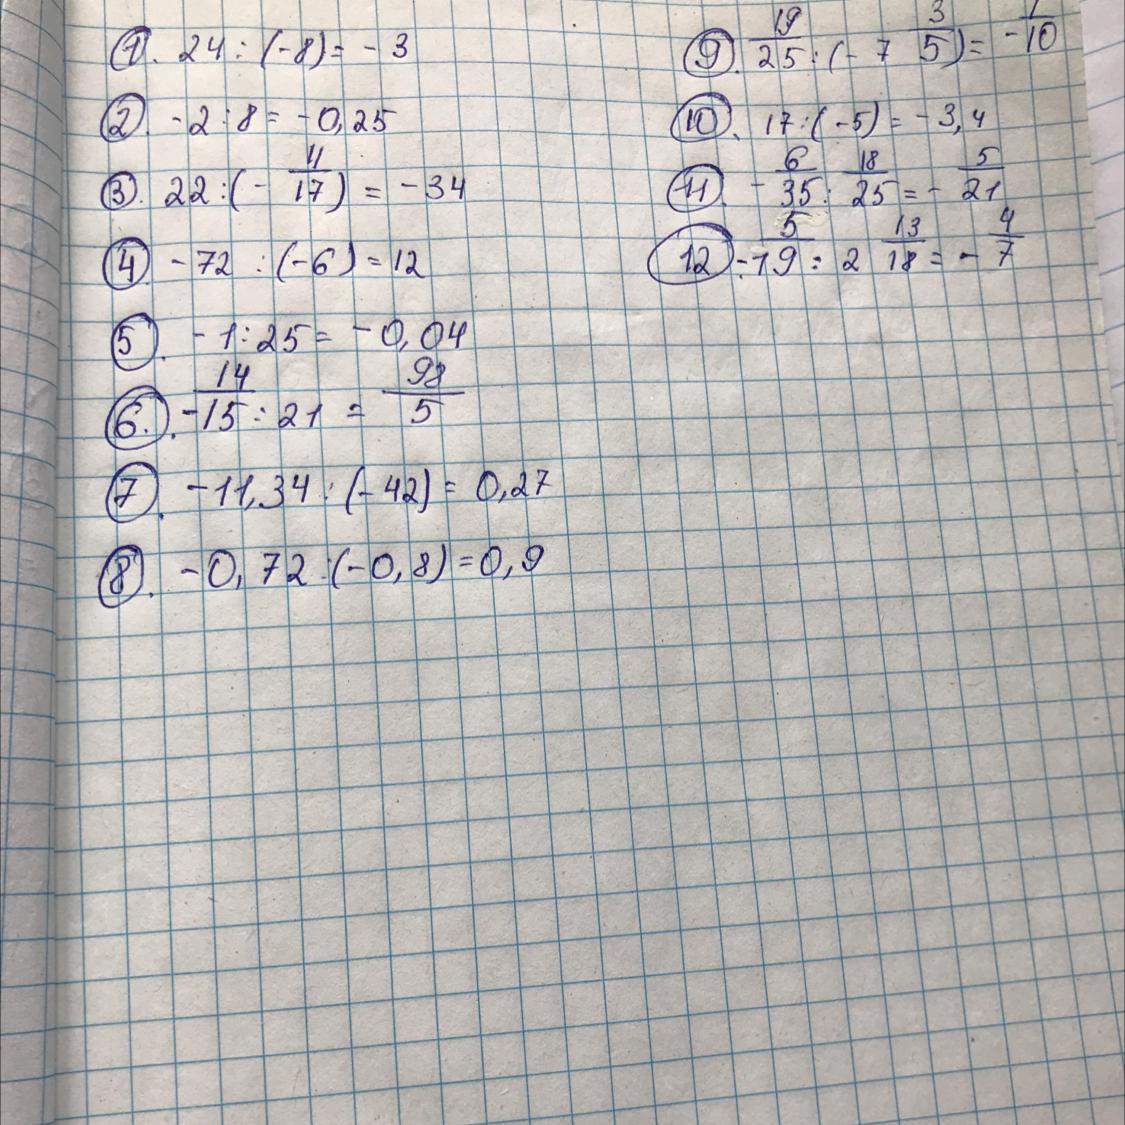 1. 24 : (-8) = -3
2. -2 : 8 = -0,25
3. 22 : (- 11/17) = -34
4. -72 : (-6) = 12
5. -1 : 25 = -0,04
6. - 14/15 : 21 = 98/5
7. -11,34 : (-42) = 0,27
8. -0,72 : (-0,8) = 0,9
9. 19/25 : (-7 3/5) = - 1/10
10. 17 : (-5) = -3,4
11. - 6/35 : 18/25 = - 5/21
12. - 5/19 : 2 13/18 = - 4/7